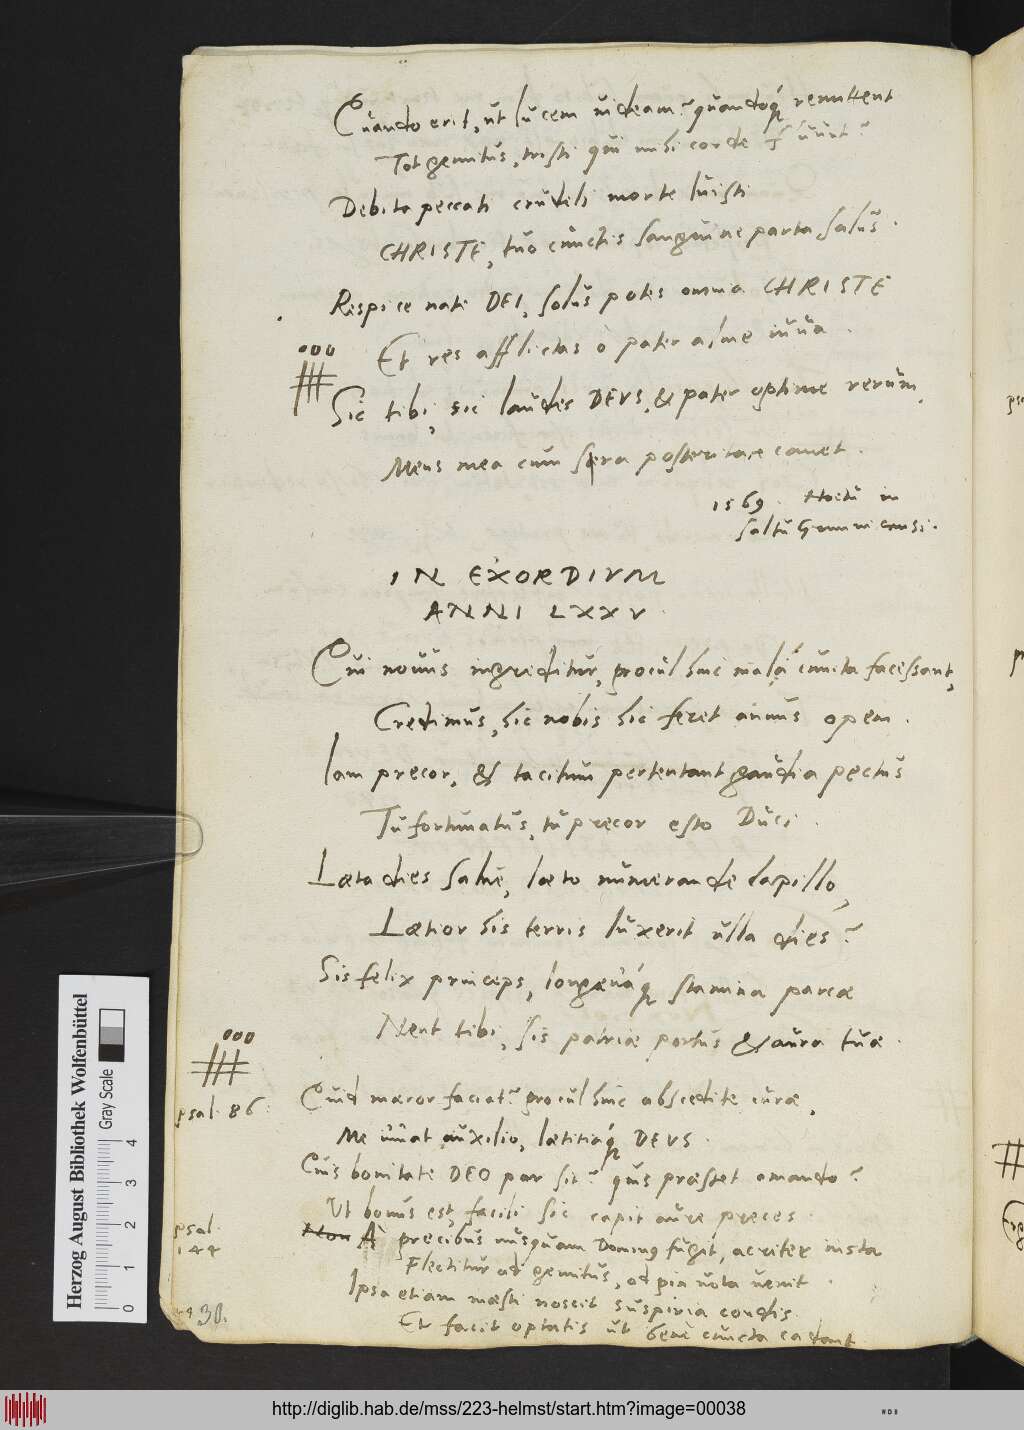 Quando erit, ut lucem videam? quandoq́; remittent
Tot gemitus, tristi qui mihi corde fluunt?
Debita peccati crudeli morte luisti
CHRISTE, tuo cunctis sanguine parta salus.
Respice nate DEI, solus potes omnia CHRISTE
Et res afflictas ò pater alme iuva.
Sic tibi, sic laudes DEUS, & pater optime rerum,
Mens mea cum sera posteritate canet.
1569. Noctu in
saltu
IN EXORDIVM
ANNI LXXV.
Qui novus ingreditur, procul hinc mala cuncta facessant,
Credimus, hic nobis hic feret annus opem.
Iam precor, & tacitum pertentant gaudia pectus
Tu fortunatus, tu precor esto Duci.
Læta dies salve, læto numerande lapillo,
Lætior his terris luxerit ulla dies?
Sis felix princeps, longævaq́; stamina parcæ
Nent tibi, sis patriæ portus & aura tuæ.
psal. 86.
Quid mæror faciat? procul hinc abscedite curæ,
Me iuvat auxilio, lætitiaq́; DEUS.
Quis bonitate DEO par sit? quis præstet amando?
Ut bonus est, facili sic capit aure preces.
psal.
144
Non A precibus nusquam Dominus fugit, acriter insta
Flectitur ad gemitus, ad pia vota venit.
Ipsa etiam mæsti noscit suspiria cordis
Et facit optatis ut bene cuncta cadant
30.
Herzog August Bibliothek Wolfenbüttel
Gray Scale
0 1 2 3 4
http://diglib.hab.de/mss/223-helmst/start.htm?image=00038